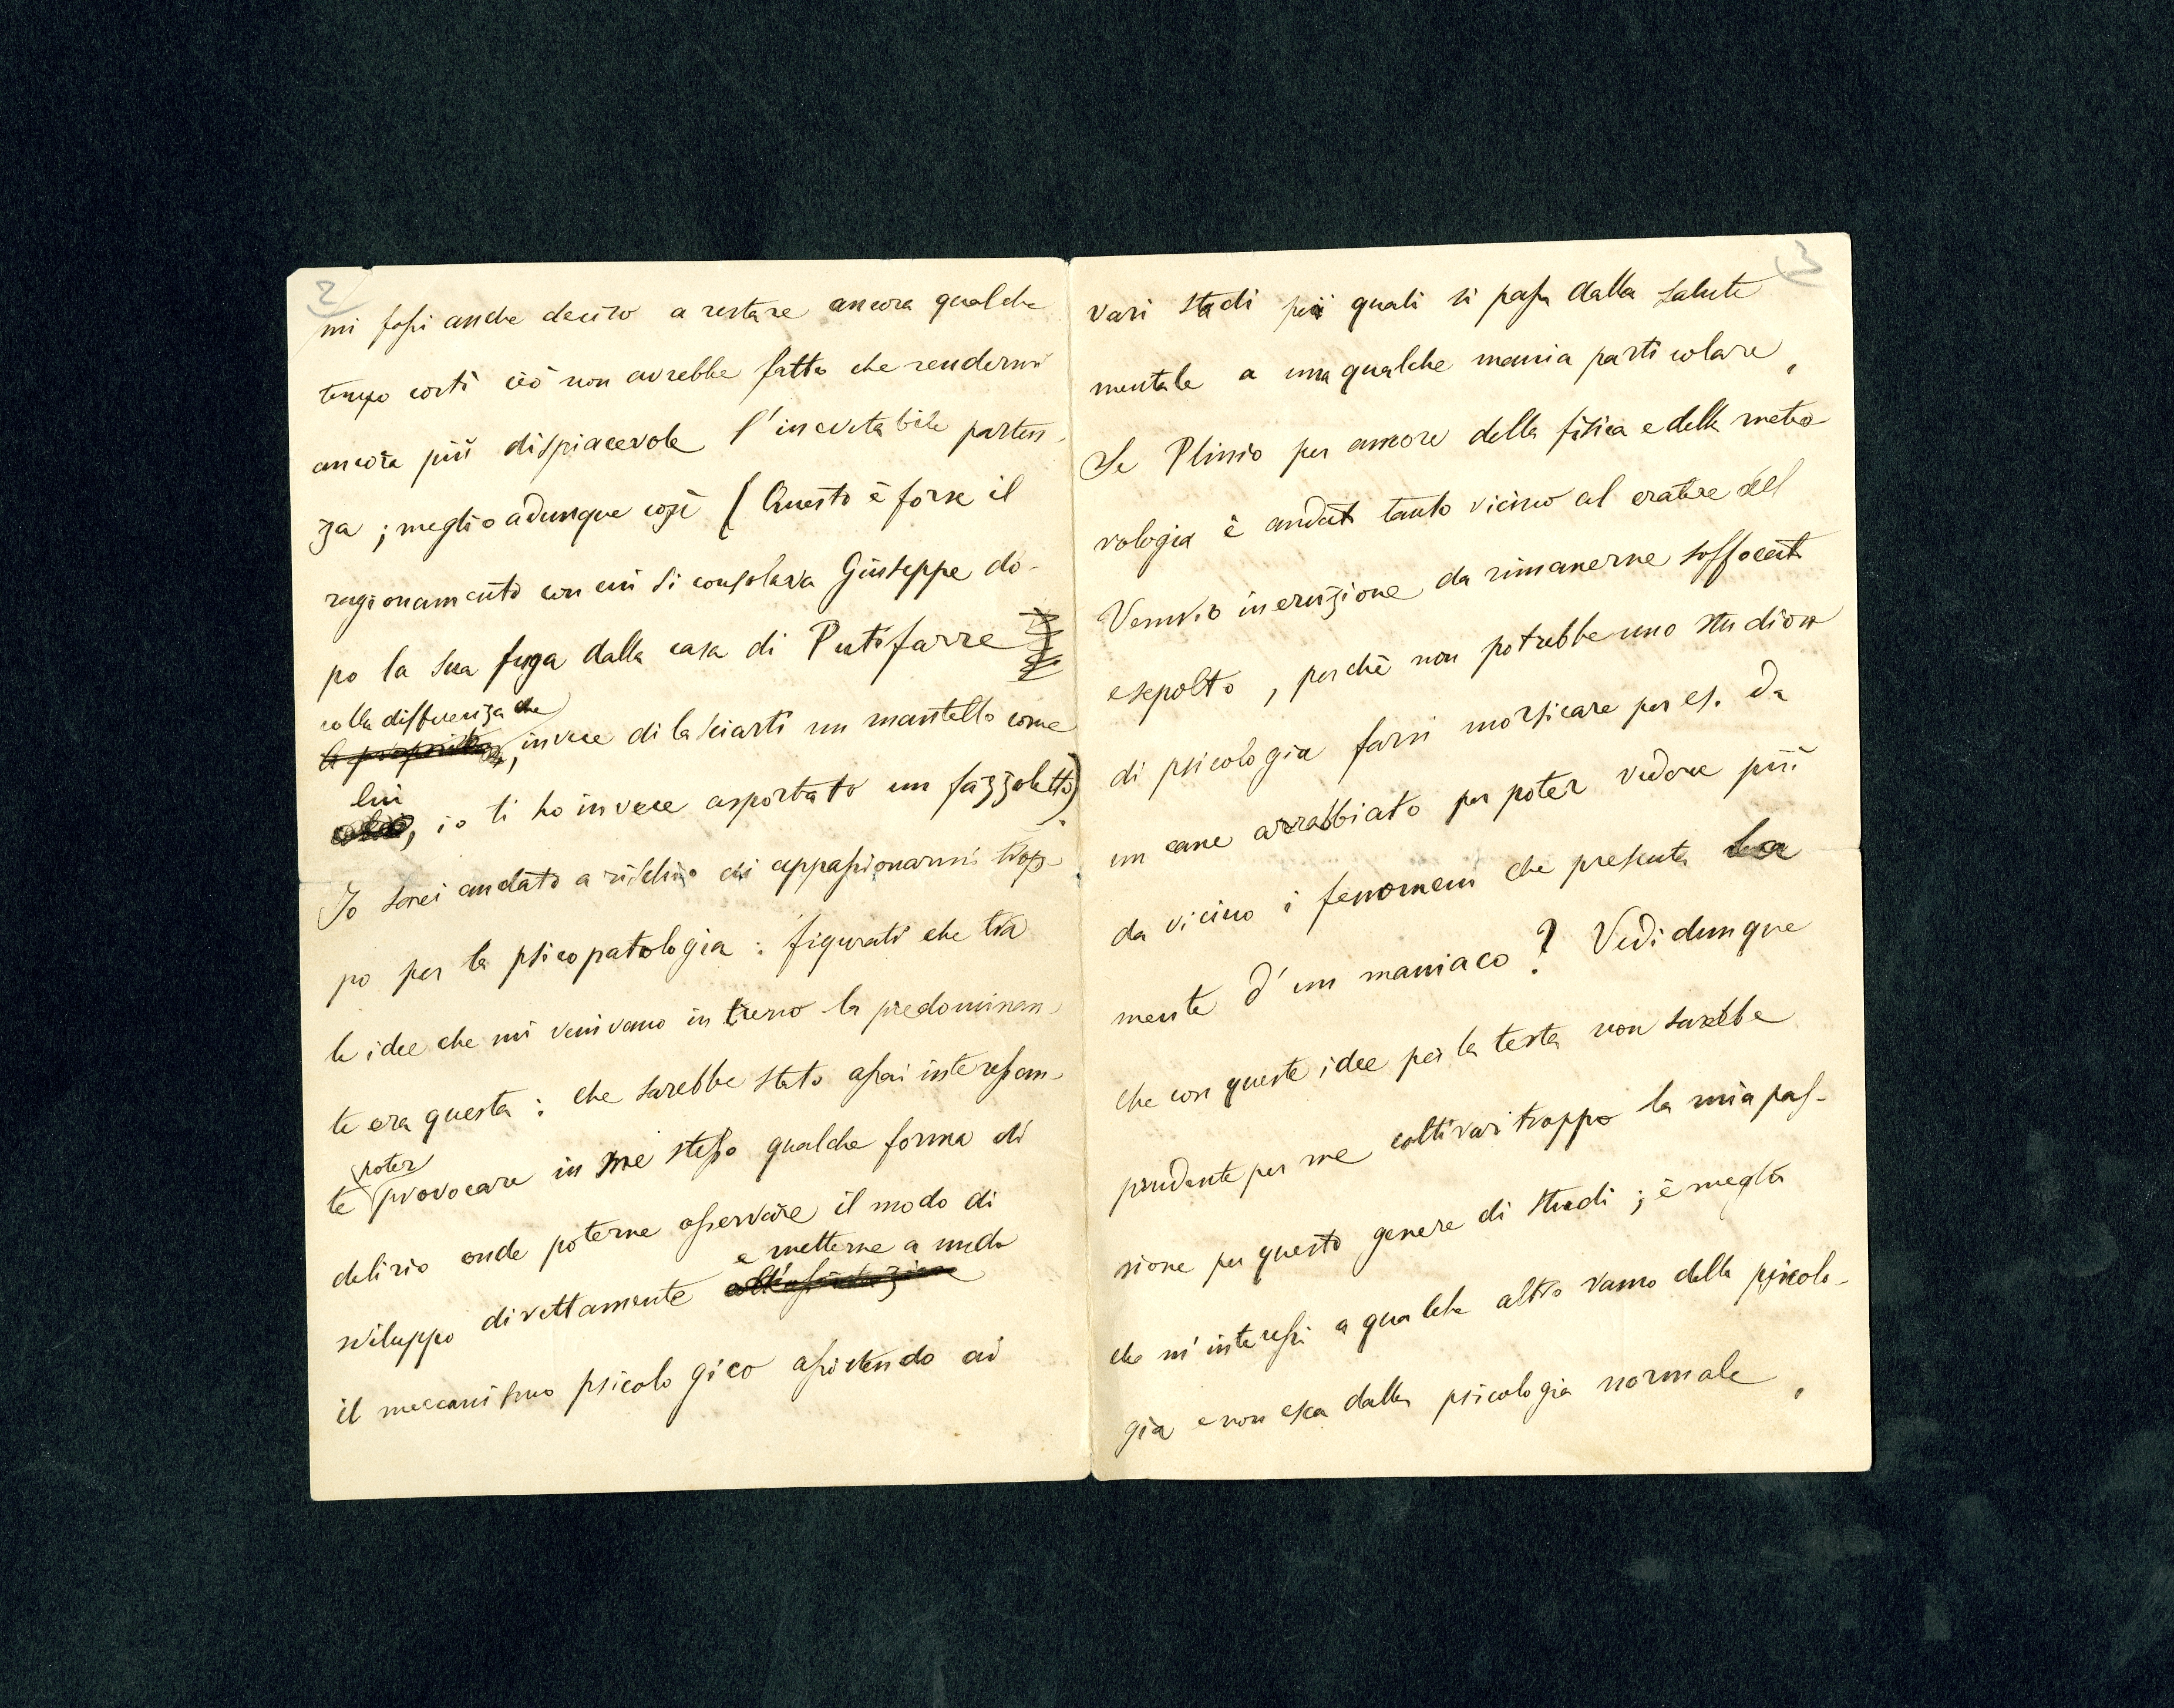 2
mi fossi anche deciso a restare ancora qualche
tempo costì ciò non avrebbe fatto che rendermi
ancora più dispiacevole l'inevitabile parten-
za ; meglio adunque così ( Questo è forse il
ragionamento con cui si consolava Giuseppe do-
po la sua fuga dalla casa di Putifarre
colla differenza che
, invece di lasciarti un mantello come
lui
, io ti ho invece asportato un fazzoletto).
Io sarei andato a rischio di appassionarmi trop-
po per la psicopatologia : figurati che tra
le idee che mi venivano in treno la predominan-
te era questa : che sarebbe stato assai interessan-
poter
te provocare in me stesso qualche forma di
delirio onde poterne osservare il modo di
e metterne a nudo
sviluppo direttamente
il meccanismo psicologico assistendo ai
3
vari stadi pei quali si passa dalla salute
mentale a una qualche mania particolare,
Se Plinio per amore della fisica e della meteo
rologia è andato tanto vicino al cratere del
Vesuvio in eruzione da rimanerne soffocato
e sepolto , perchè non potrebbe uno studioso
di psicologia farsi morsicare per es. da
un cane arrabbiato per poter vedere più
da vicino i fenomeni che presenta la
mente d'un maniaco ? Vedi dunque
che con queste idee per la testa non sarebbe
prudente per me coltivar troppo la mia pas-
sione per questo genere di studi ; è meglio
che m'interessi a qualche altro ramo della psicolo-
gia e non esca dalla psicologia normale ,